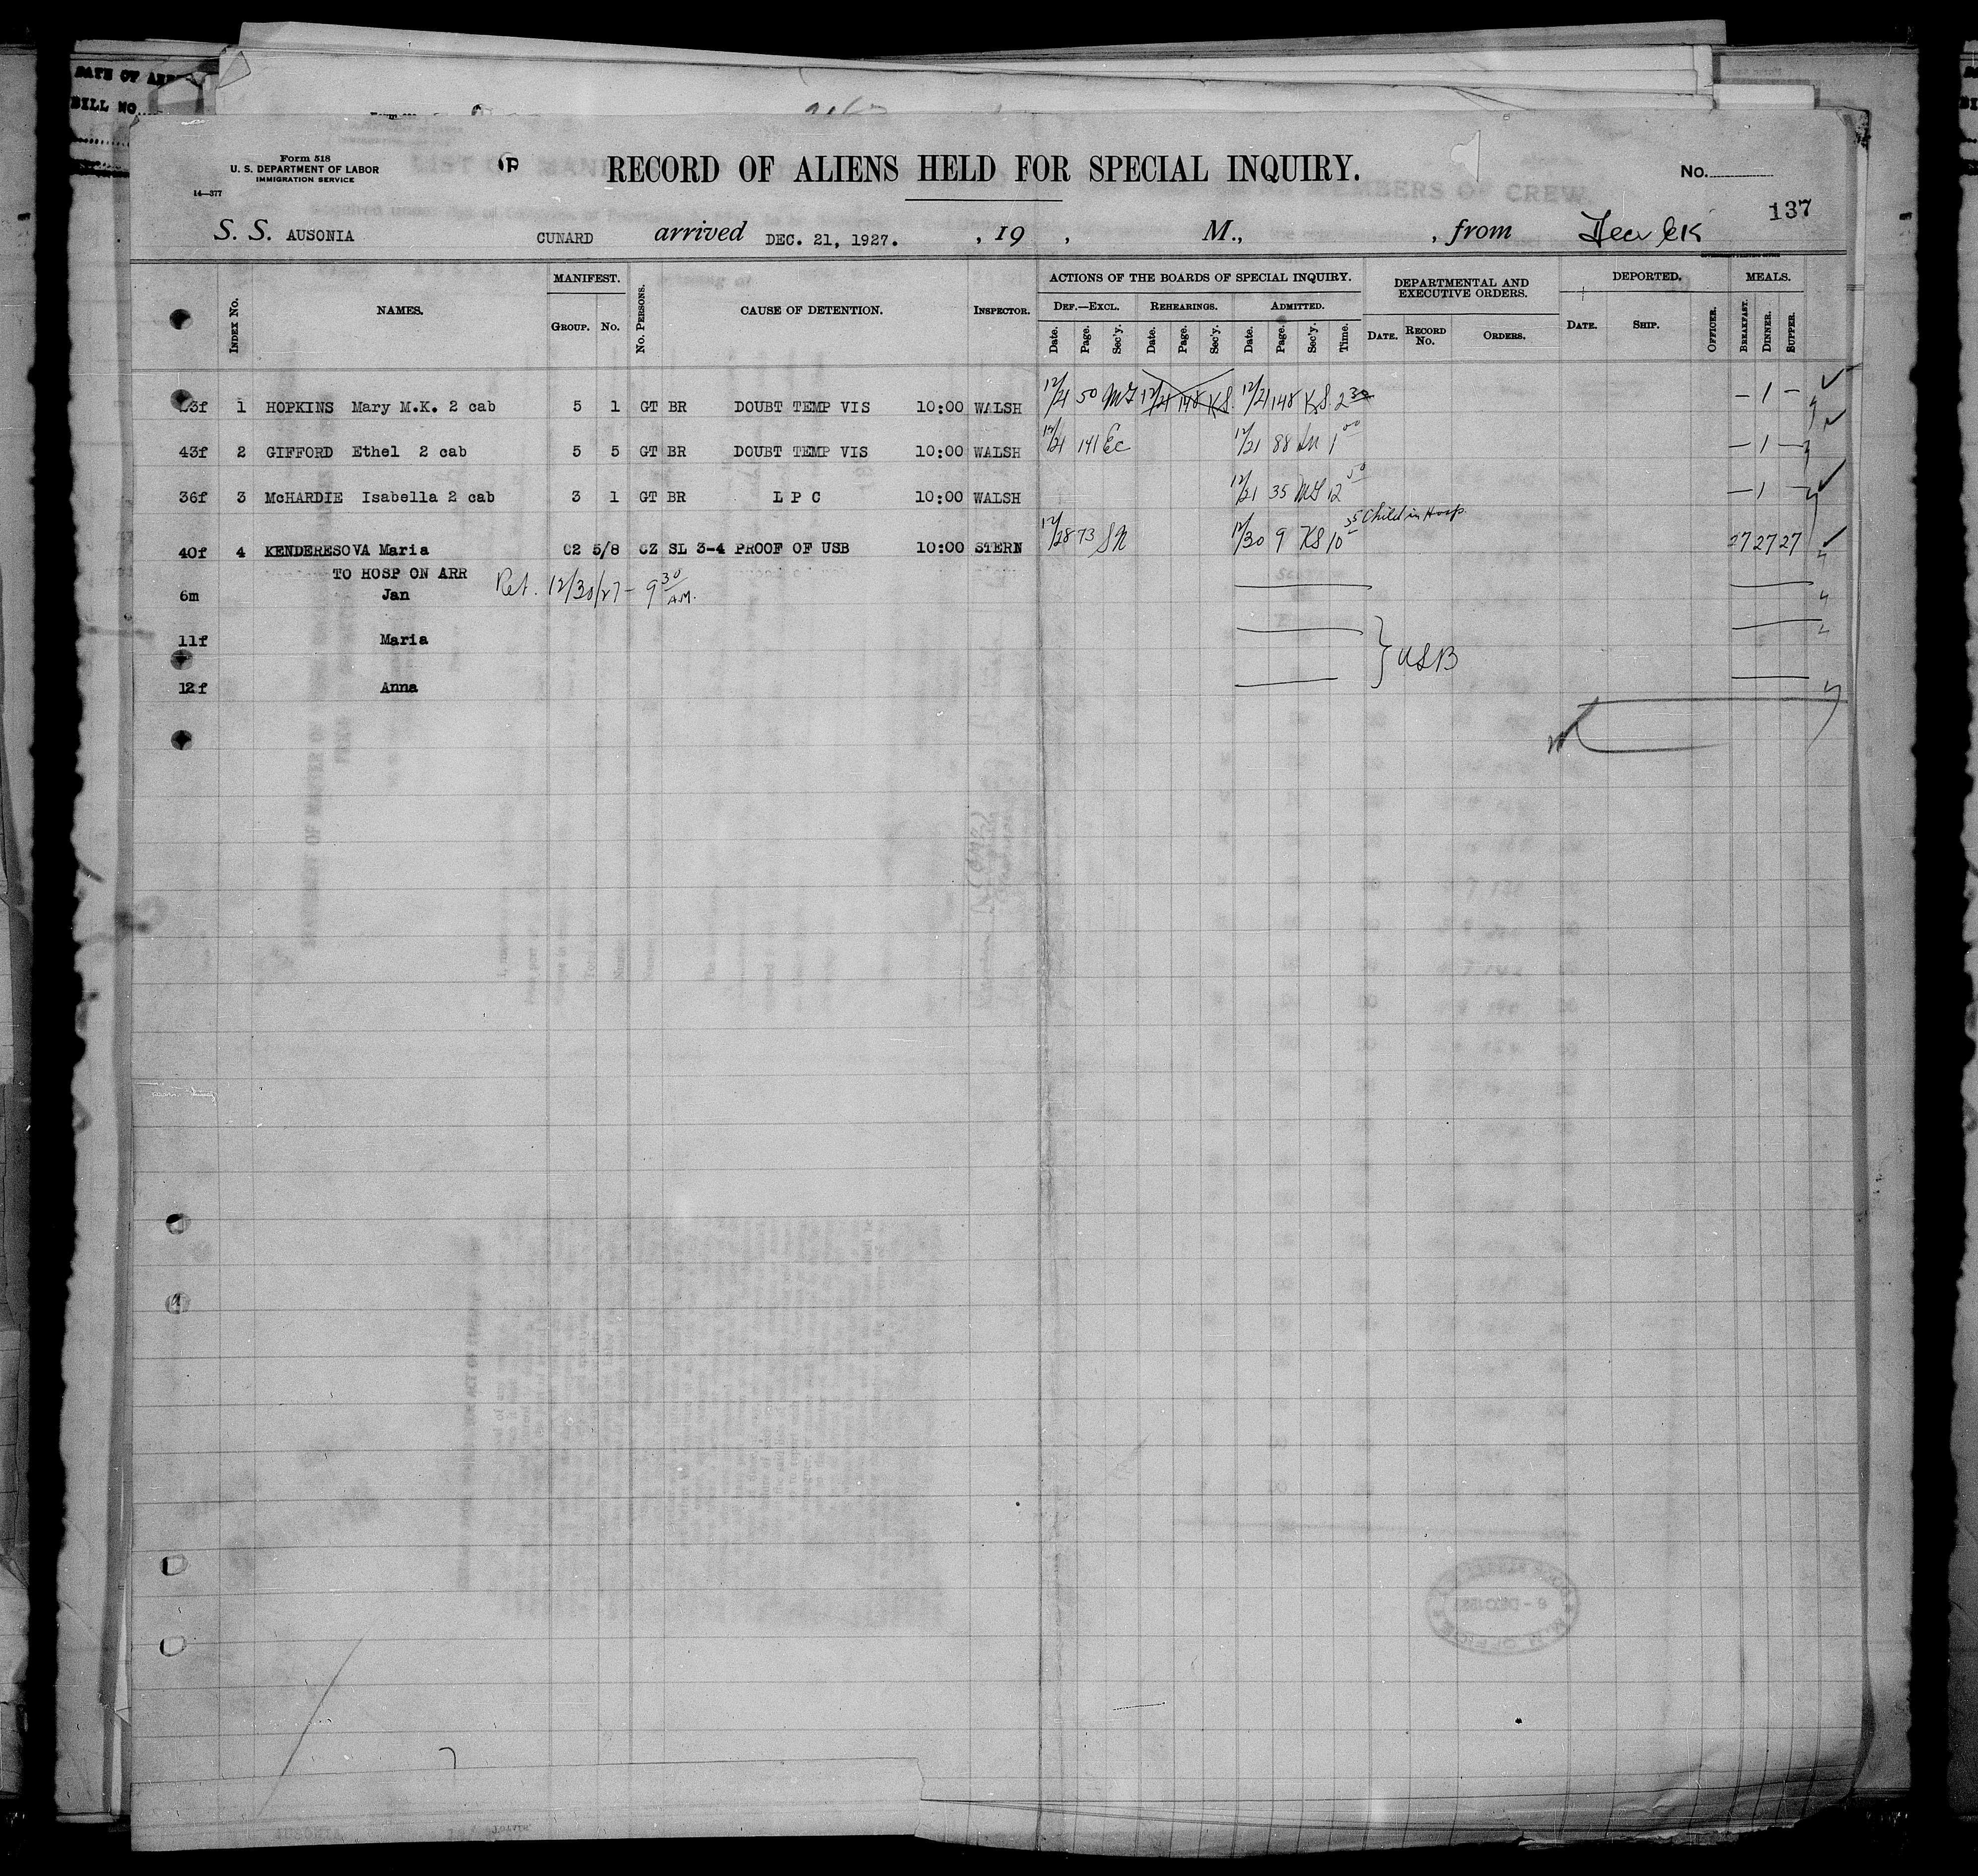 DATE OF
BILL NO.
Form 518
U. S. DEPARTMENT OF LABOR
IMMIGRATION SERVICE
14—377
P
RECORD OF ALIENS HELD FOR SPECIAL INQUIRY.
No.
137
S. S. AUSONIA CUNARD arrived DEC. 21, 1927. , 19 , M., , from
INDEX No. NAMES. MANIFEST. GROUP. No. No. PERSONS. CAUSE OF DETENTION. INSPECTOR. ACTIONS OF THE BOARDS OF SPECIAL INQUIRY. DEPARTMENTAL AND EXECUTIVE ORDERS. DEPORTED. MEALS.
DEF.—EXCL. REHEARINGS. ADMITTED.
Date. Page. Sec'y. Date. Page. Sec'y. Date. Page. Sec'y. Time. DATE. RECORD No. ORDERS. DATE. SHIP. OFFICER. BREAKFAST. DINNER. SUPPER.
3f 1 HOPKINS Mary M.K. 2 cab 5 1 GT BR DOUBT TEMP VIS 10:00 WALSH 12/21 50 12/21 148 KS 12/21 148 KS 2 30 — 1 —
43f 2 GIFFORD Ethel 2 cab 5 5 GT BR DOUBT TEMP VIS 10:00 WALSH 12/21 141 Ec 12/21 88 1 00 — 1 —
36f 3 McHARDIE Isabella 2 cab 3 1 GT BR L P C 10:00 WALSH 12/21 35 12 50 — 1 —
40f 4 KENDERESOVA Maria C2 5/8 CZ SL 3-4 PROOF OF USB 10:00 STERN 12/28 73 SN 12/30 9 KS 10 35 Child in Hosp. 27 27 27
TO HOSP ON ARR
6m Jan Ret. 12/30/27 – 9 30 A.M.
11f Maria
USB
12f Anna